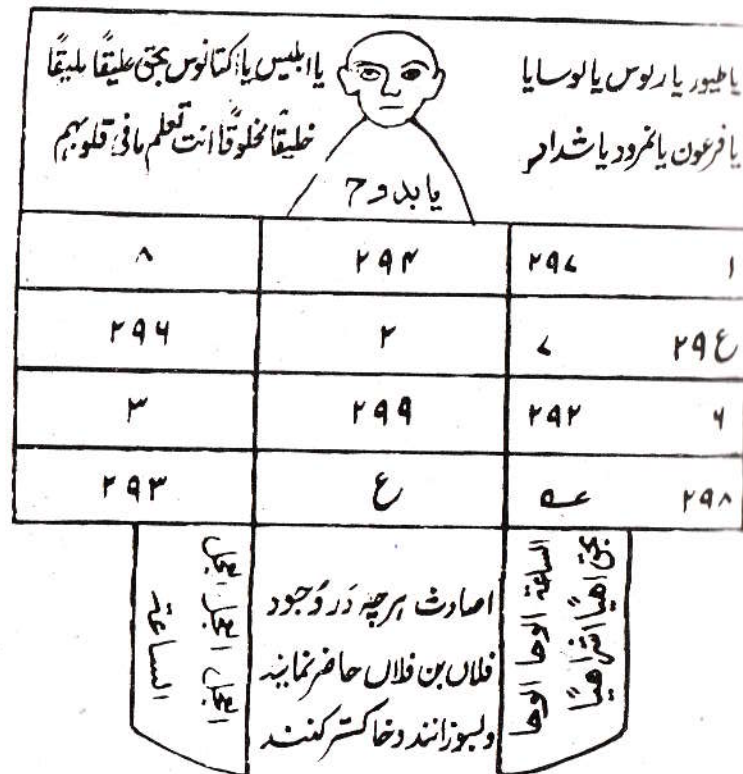 یا طیور یا رلوس یا لوسایا
یا فرعون یا نمرود یا شداد
یا ابلیس یا کتانوس بحق علیقًا ملیقًا
خلیقًا مخلوقًا انت تعلم مافی قلوبهم
یا بدوح
۱ ۲۹۷ ۲۹۴ ۸
۲۹ع ۷ ۲ ۲۹۶
۶ ۲۹۲ ۲۹۹ ۳
۲۹۸ ع ۲۹۳
بحق اهیًا اشراهیًا
الساعة الوحا الوحا
ہرچہ دَر وُجود
فلاں بن فلاں حاضر نمایند
و بسوزانند و خاکستر کنند
العجل العجل العجل
الساعة